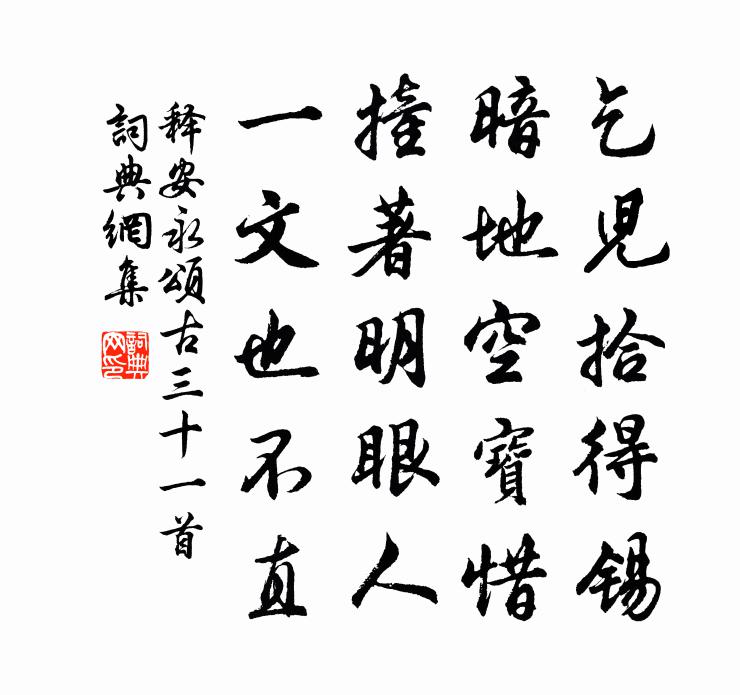 乞児拾得锡
暗地空寶惜
撞著明眼人
一文也不直
释安永頌古三十一首
詞典網集
詞典網印